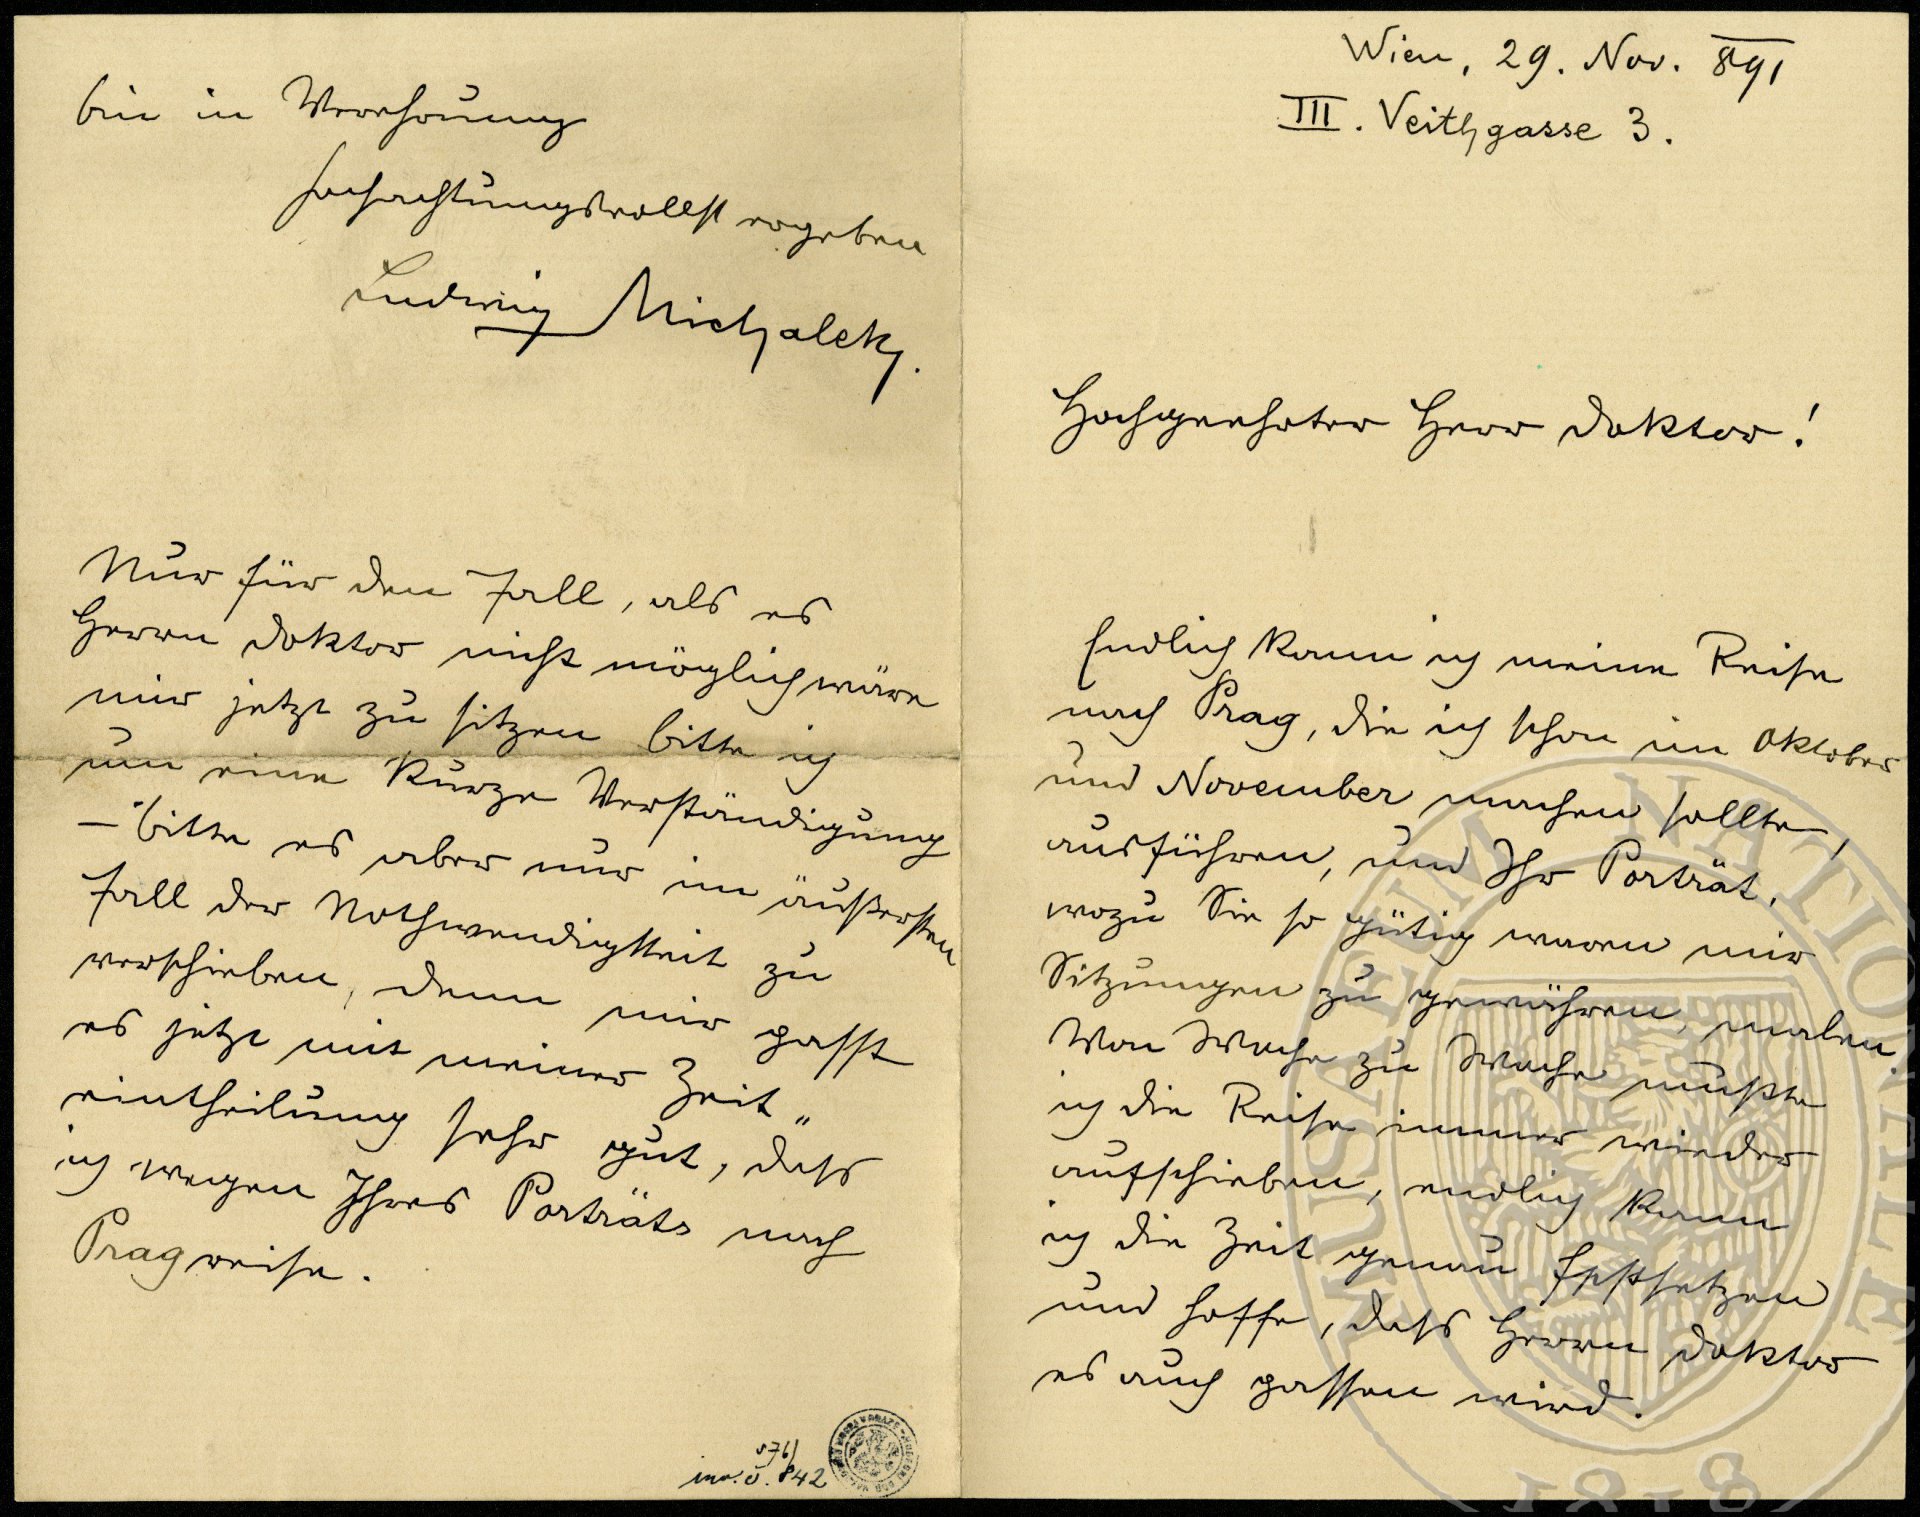 Wien, 29. Nov. 891
III. Veithgasse 3.
Hochgeehrter Herr Doktor!
Endlich kann ich meine Reise
nach Prag, die ich schon im Oktober
und November machen sollte,
ausführen, und Ihr Porträt,
wozu Sie so gütig waren mir
Sitzungen zu gewähren, malen.
Von Woche zu Woche mußte
ich die Reise immer wieder
aufschieben, endlich kann
ich die Zeit genau festsetzen
und hoffe, dass Herrn Doktor
es auch passen wird.
bin in Verehrung
hochachtungsvollst ergeben
Ludwig Michalek.
Nur für den Fall, als es
Herrn Doktor nicht möglich wäre
mir jetzt zu sitzen bitte ich
um eine kurze Verständigung
– bitte es aber nur im äußersten
Fall der Nothwendigkeit zu
verschieben, denn mir passt
es jetzt mit meiner Zeit„
eintheilung sehr gut, dass
ich wegen Ihres Porträts nach
Prag reise.
inv. č. 842
MUSAEUM NATIONALE
1818